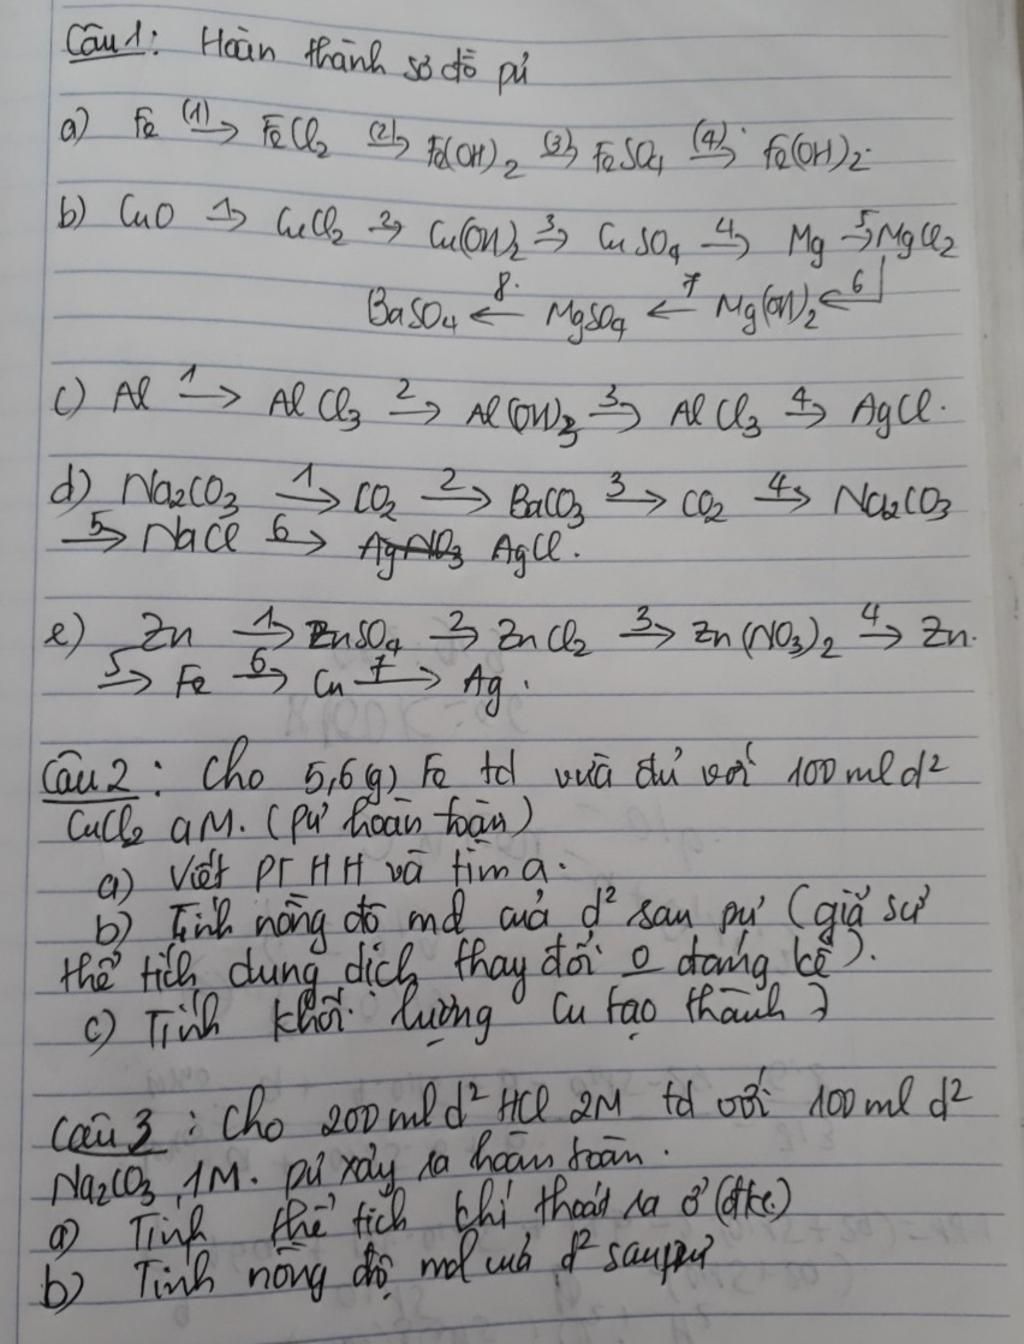 Câu 1: Hoàn thành sơ đồ pứ
a) Fe (1)→ FeCl2 (2)→ Fe(OH)2 (3)→ FeSO4 (4)→ Fe(OH)2.
b) CuO 1→ CuCl2 2→ Cu(OH)2 3→ CuSO4 4→ Mg 5→ MgCl2
BaSO4 ←8 MgSO4 ←7 Mg(OH)2 ←6
c) Al 1→ AlCl3 2→ Al(OH)3 3→ AlCl3 4→ AgCl.
d) Na2CO3 1→ CO2 2→ BaCO3 3→ CO2 4→ Na2CO3
5→ NaCl 6→ AgNO3 AgCl.
e) Zn 1→ ZnSO4 2→ ZnCl2 3→ Zn(NO3)2 4→ Zn.
5→ Fe 6→ Cu 7→ Ag.
Câu 2: Cho 5,6(g) Fe td vừa đủ với 100ml d2
CuCl2 aM. (Pứ hoàn toàn)
a) Viết PTHH và tìm a.
b) Tính nồng độ mol của d2 sau pứ (giả sử
thể tích dung dịch thay đổi 0 đáng kể).
c) Tính khối lượng Cu tạo thành?
Câu 3: Cho 200ml d2 HCl 2M td với 100ml d2
Na2CO3 1M. pứ xảy ra hoàn toàn.
a) Tính thể tích khí thoát ra ở (đkc)
b) Tính nồng độ mol của d2 sau pứ